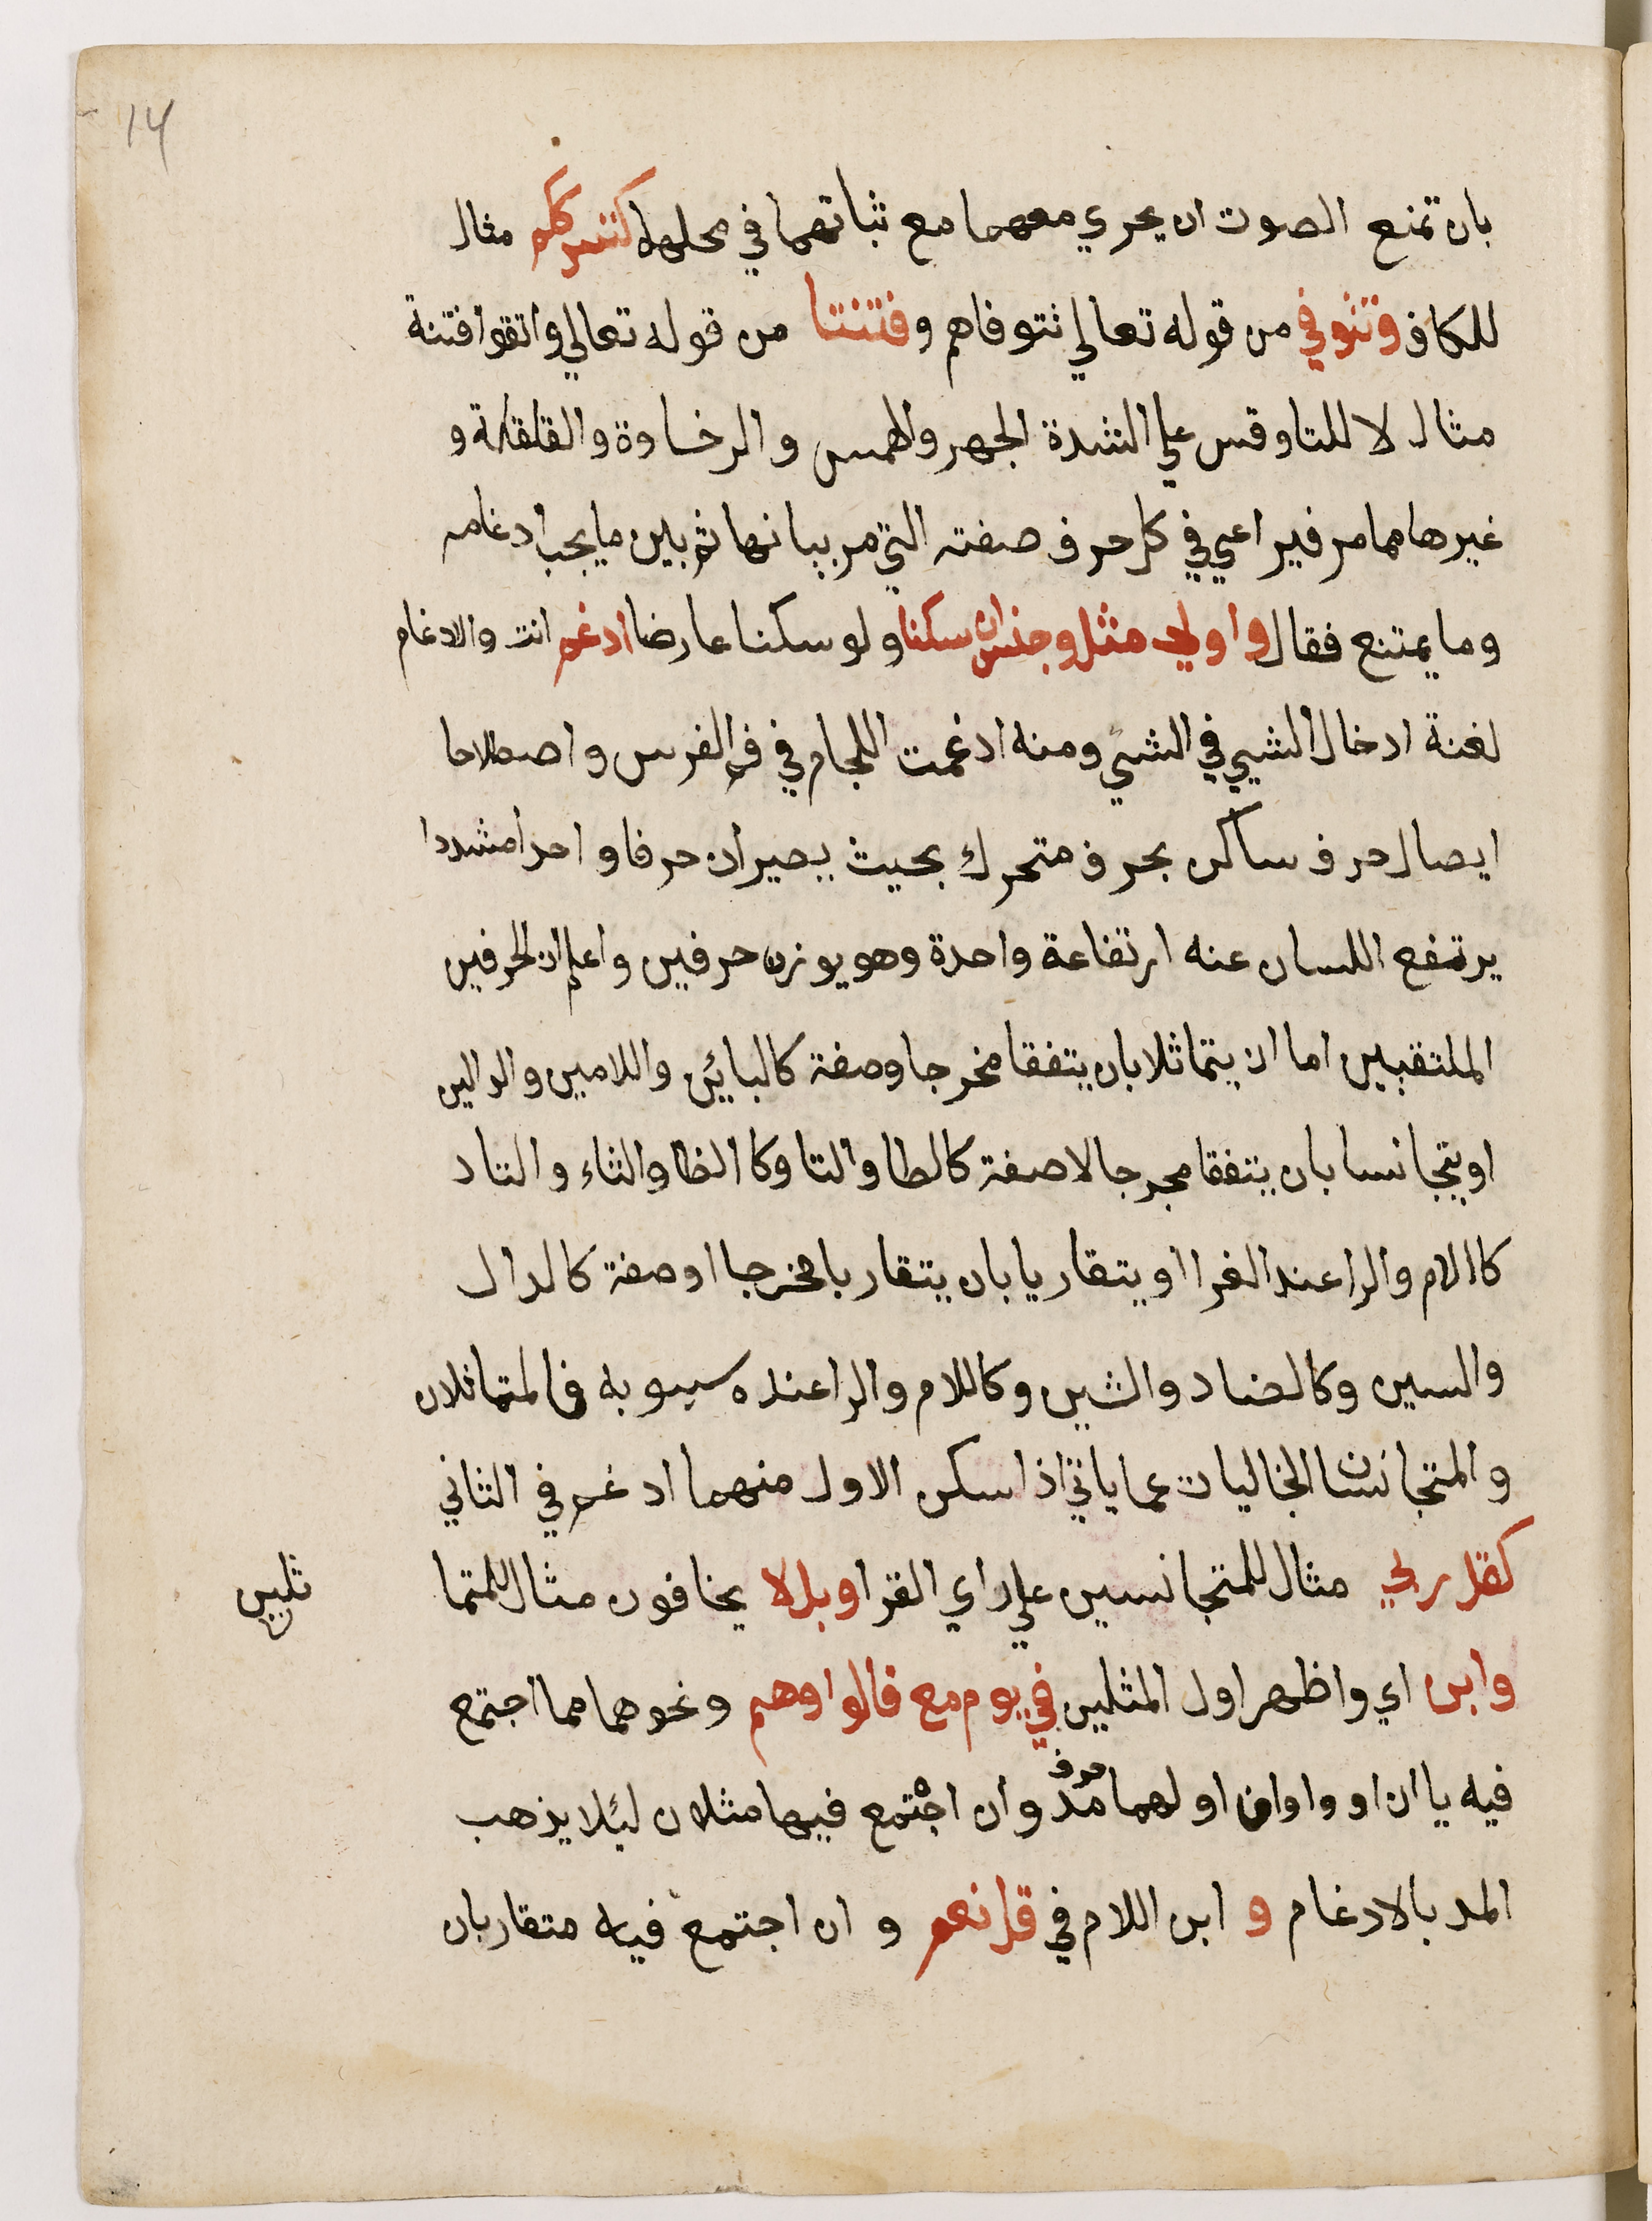 14
بان تمنع الصوت ان يجري معهما مع ثباتهما في محلهما كشرككم مثال
للكاف وتتوفي من قوله تعالي تتوفاهم وفتنتا من قوله تعالي واتقوا فتنة
مثال لا للتا وقس علي الشدة الجهر والهمس والرخاوة والقلقلة و
غيرها مما مر فيراعي في كل حرف صفته التي مر بيانها ثم بين ما يجب ادغامه
وما يمتنع فقال واولي مثل وجنس ان سكنا ولو سكنا عارضا ادغم انت والادغام
لغة ادخال الشيي في الشيء ومنه ادغمت اللجام في فم الفرس واصطلاحا
ايصال حرف ساكن بحرف متحرك بحيث يصيران حرفا واحدا مشددا
يرتفع اللسان عنه ارتفاعة واحدة وهو يوزن حرفين واعلم ان الحرفين
الملتقيين اما ان يتماثلا بان يتفقا مخرجا وصفة كالبائين واللامين والدالين
او يتجانسا بان يتفقا مخرجا لا صفة كالطا والتا وكا الظا والثاء والتا د
كا الام والرا عند الفرا او يتقاربا بان يتقاربا مخرجا او صفة كالدال
والسين وكالضاد والشين وكاللام والرا عنده سيبويه فالمتماثلان
والمتجانسان الخاليان عما ياتي اذا سكن الاول منهما ادغم في الثاني
كقل ربي مثال للمتجانسين علي راي الفرا وبل لا يخافون مثال للمتما
ثلين
وابن اي واظهر اول المثلين في يوم مع قالوا وهم ونحوهما مما اجتمع
فيه ياان او واوان اولهما حرف مد وان اجتمع فيها مثلان ليئلا يذهب
المد بالادغام و ابن اللام في قل نعم و ان اجتمع فيه متقاربان